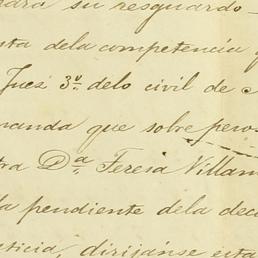 para su resguardo
sta dela competencia
Juez 3º delo civil de
manda que sobre peso
tra Dª Teresa Villam
la pendiente dela dec
sticia, dirijanse esta